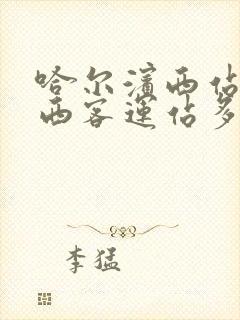 哈尔滨西佔
西客运佔多
李猛